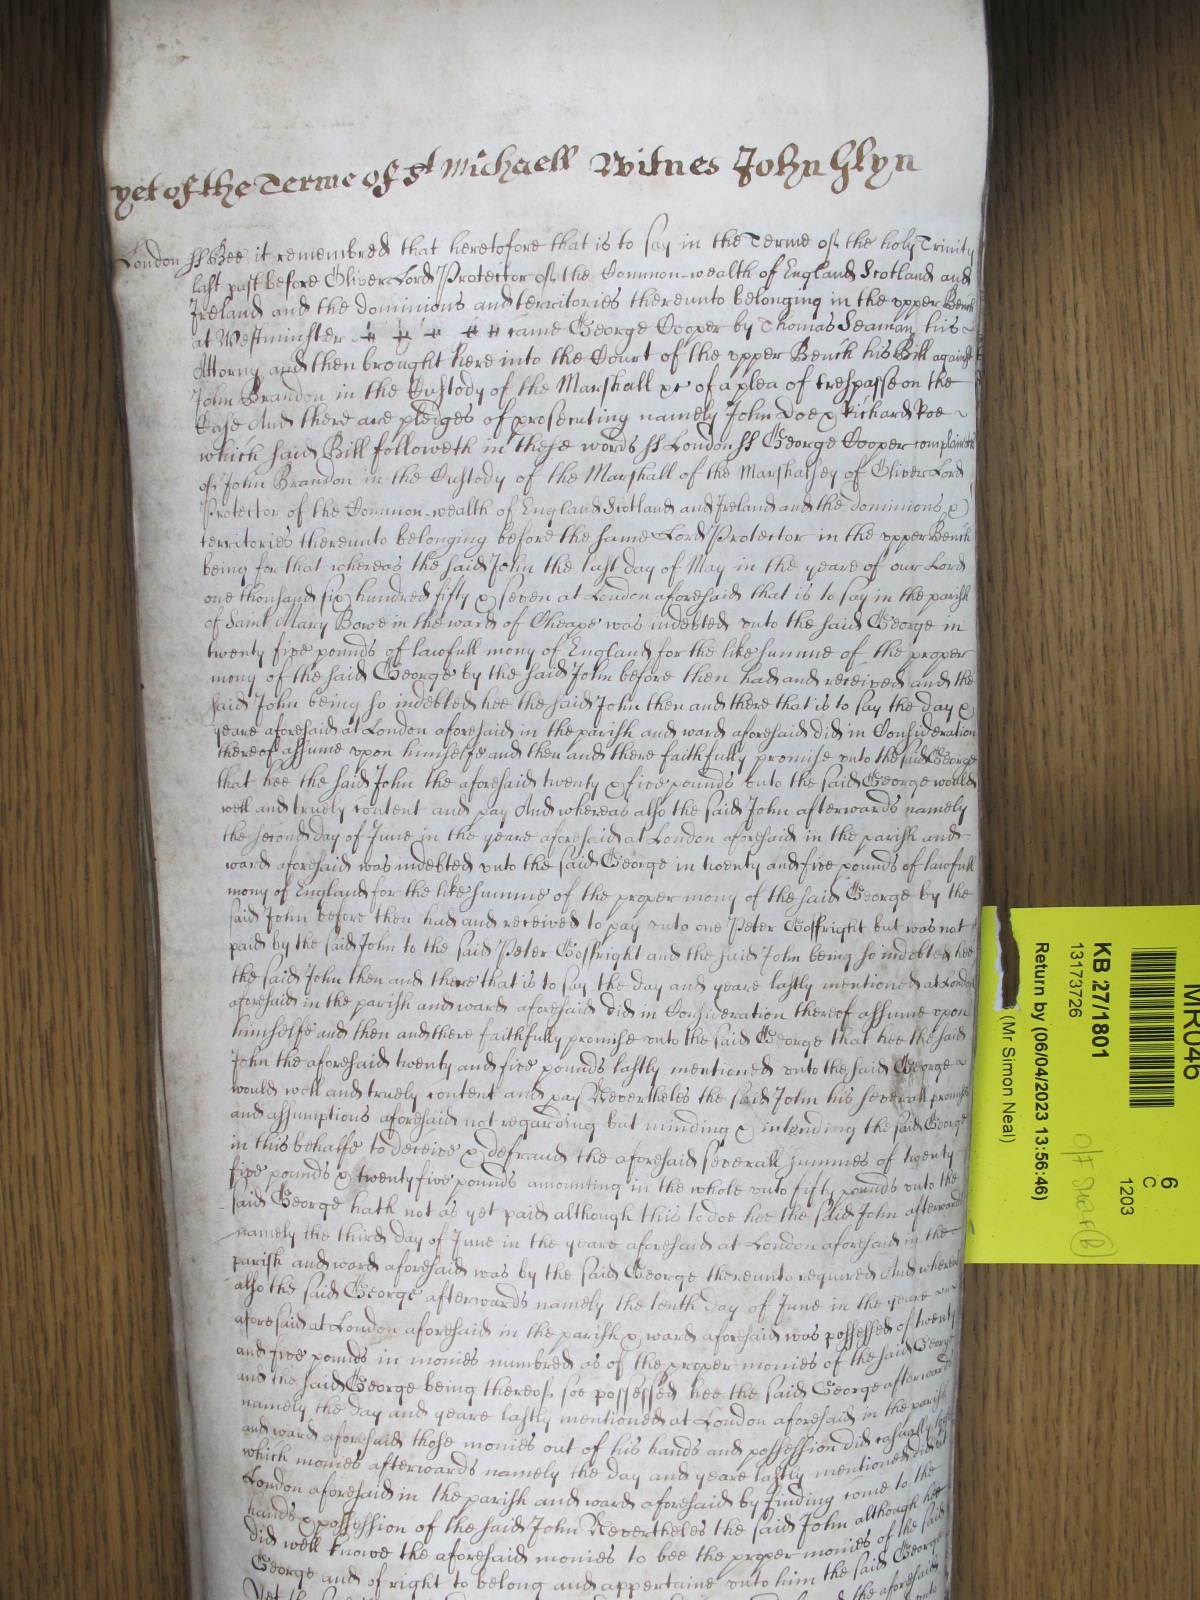 yet of the Terme of St Michaell Witnes John Glyn
London ss Bee it remembred that heretofore that is to say in the Terme of the holy Trinity
last past before Oliver Lord Protector of the Common-wealth of England Scotland and
Ireland and the dominions and territories thereunto belonging in the upper Bench
at Westminster came George Cooper by Thomas Seaman his
Attorny and then brought here into the Court of the upper Bench his Bill against
John Brandon in the Custody of the Marshall &c of a plea of trespasse on the
Case And there are pledges of prosecuting namely John Doe & Richard Roe
which said Bill followeth in these words ss London ss George Cooper complaineth
of John Brandon in the Custody of the Marshall of the Marshalsey of Oliver Lord
Protector of the Common-wealth of England Scotland and Ireland and the dominions &
territories thereunto belonging before the same Lord Protector in the upper Bench
being for that whereas the said John the last day of May in the yeare of our Lord
one thousand six hundred fifty & seven at London aforesaid that is to say in the parish
of Saint Mary Bowe in the ward of Cheape was indebted unto the said George in
twenty five pounds of lawfull mony of England for the like summe of the proper
mony of the said George by the said John before then had and received and the
said John being so indebted hee the said John then and there that is to say the day &
yeare aforesaid at London aforesaid in the parish and ward aforesaid did in Consideration
thereof assume upon himselfe and then and there faithfully promise unto the said George
that hee the said John the aforesaid twenty & five pounds unto the said George would
well and truely content and pay And whereas also the said John afterwards namely
the second day of June in the yeare aforesaid at London aforesaid in the parish and
ward aforesaid was indebted unto the said George in twenty and five pounds of lawfull
mony of England for the like summe of the proper mony of the said George by the
said John before then had and received to pay unto one Peter Gosfright but was not
paid by the said John to the said Peter Gosfright and the said John being so indebted hee
the said John then and there that is to say the day and yeare lastly mentioned at London
aforesaid in the parish and ward aforesaid did in Consideration thereof assume upon
himselfe and then and there faithfully promise unto the said George that hee the said
John the aforesaid twenty and five pounds lastly mentioned unto the said George
would well and truely content and pay Nevertheles the said John his severall promises
and assumptions aforesaid not regarding but minding & intending the said George
in this behalfe to deceive & defraud the aforesaid severall summes of twenty
five pounds & twenty five pounds amounting in the whole unto fifty pounds unto the
said George hath not as yet paid although this to doe hee the said John afterwards
namely the third day of June in the yeare aforesaid at London aforesaid in the
parish and ward aforesaid was by the said George thereunto required And whereas
also the said George afterwards namely the tenth day of June in the yeare
aforesaid at London aforesaid in the parish & ward aforesaid was possessed of twenty
and five pounds in monies numbred as of the proper monies of the said George
and the said George being thereof soe possessed hee the said George afterwards
namely the day and yeare lastly mentioned at London aforesaid in the parish
and ward aforesaid those monies out of his hands and possession did casually loose
which monies afterwards namely the day and yeare lastly mentioned did at
London aforesaid in the parish and ward aforesaid by finding come to the
hands & possession of the said John Nevertheles the said John although hee
did well knowe the aforesaid monies to bee the proper monies of the said
George and of right to belong and appertaine unto him the said George
Yet the aforesaid
MR04b
6
C
1203
KB 27/1801
13173726
Return by (06/04/2023 13:56:46)
(Mr Simon Neal)